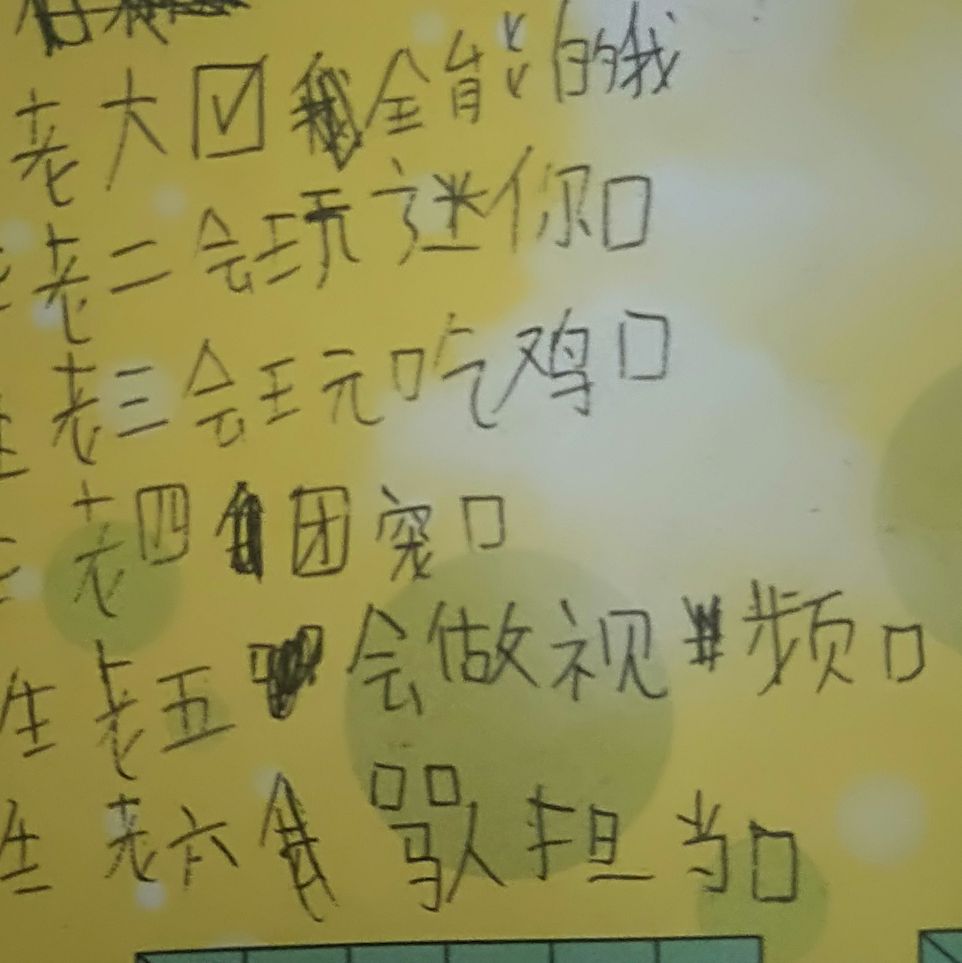 老大☑全能的我
老二会玩迷你口
老三会玩吃鸡口
老四团宠口
生老五会做视频口
生老六骂人担当口